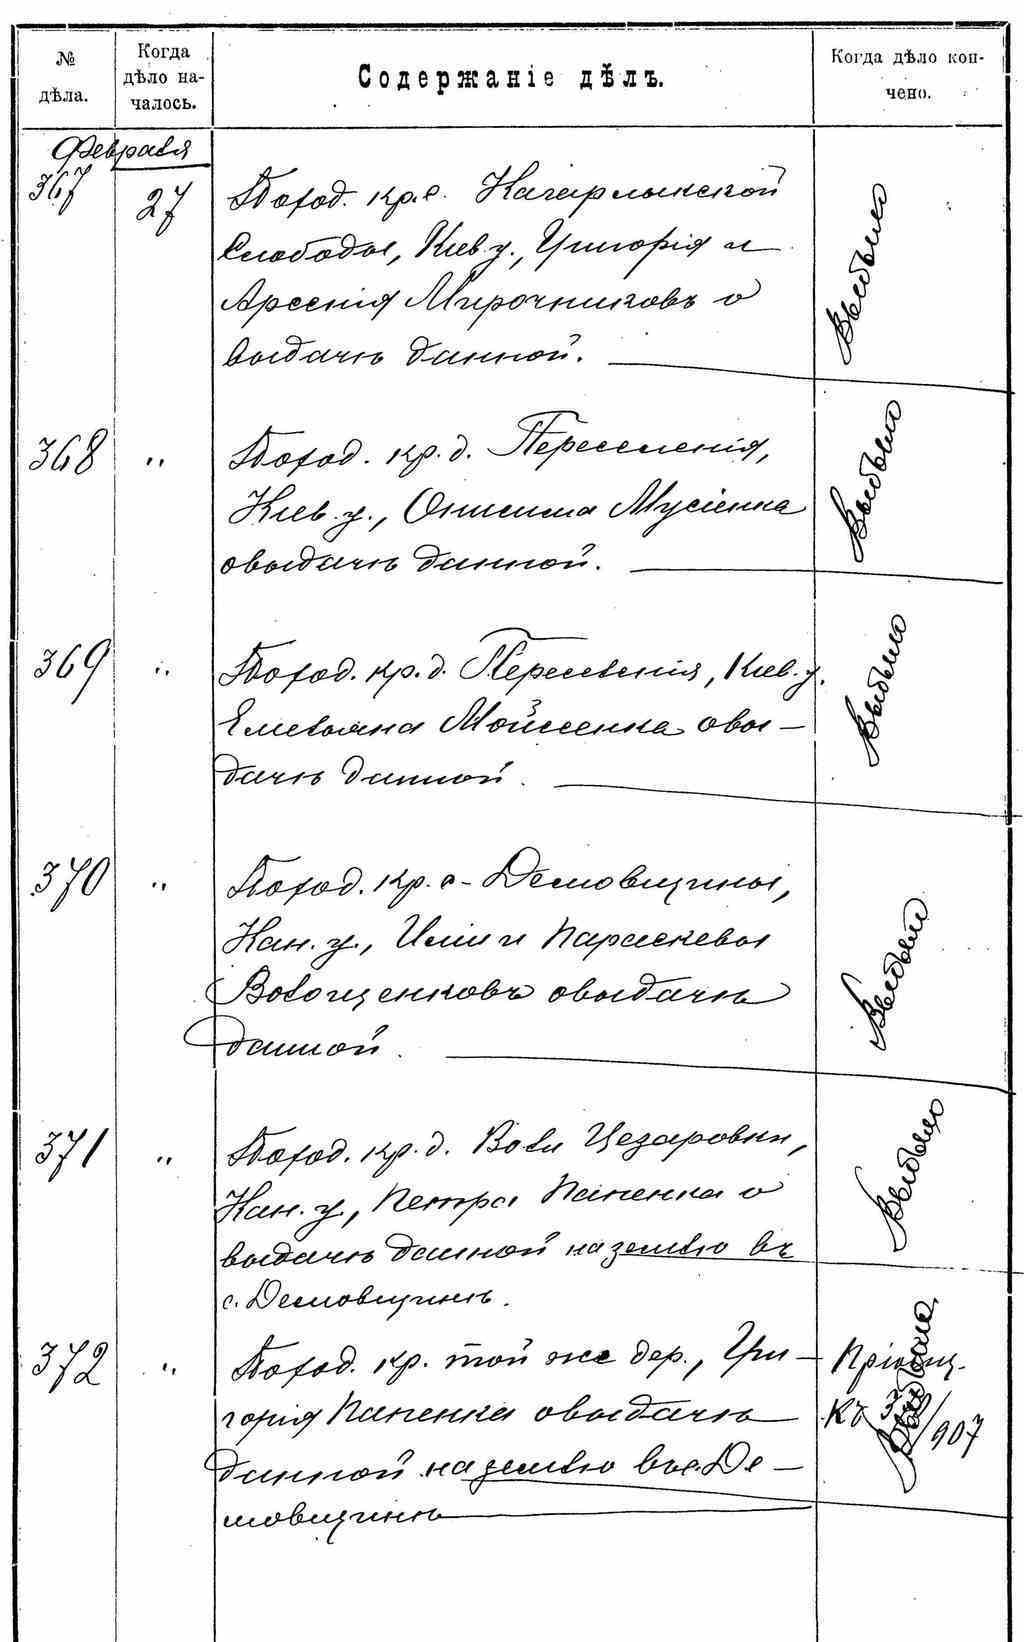 № дѣла.
Когда дѣло на-
чалось.
Содержаніе дѣлъ.
Когда дѣло кон-
чено.
Февраля
367
27
По ход. кр. с. Кагарлыкской
Слободы, Кіев. у., Григорія и
Арсенія Мирочниковъ о
выдачѣ данной.
Выбыло
368
"
По ход. кр. д. Переселенія,
Кіев. у., Онисима Мусіенка
о выдачѣ данной.
Выбыло
369
"
По ход. кр. д. Переселенія, Кіев. у.
Емельяна Мойсеенка о вы-
дачѣ данной.
Выбыло
370
"
По ход. кр. с. Демовщины,
Кан. у., Иліи и Параскевы
Волощенковъ о выдачѣ
данной.
Выбыло
371
"
По ход. кр. д. Воли Цезаровки,
Кан. у., Петра Папенка о
выдачѣ данной на землю въ
с. Демовщинѣ.
Выбыло
372
"
По ход. кр. той же дер., Гри-
горія Папенка о выдачѣ
данной на землю въ с. Де-
мовщинѣ
Пріобщ.
къ
/907